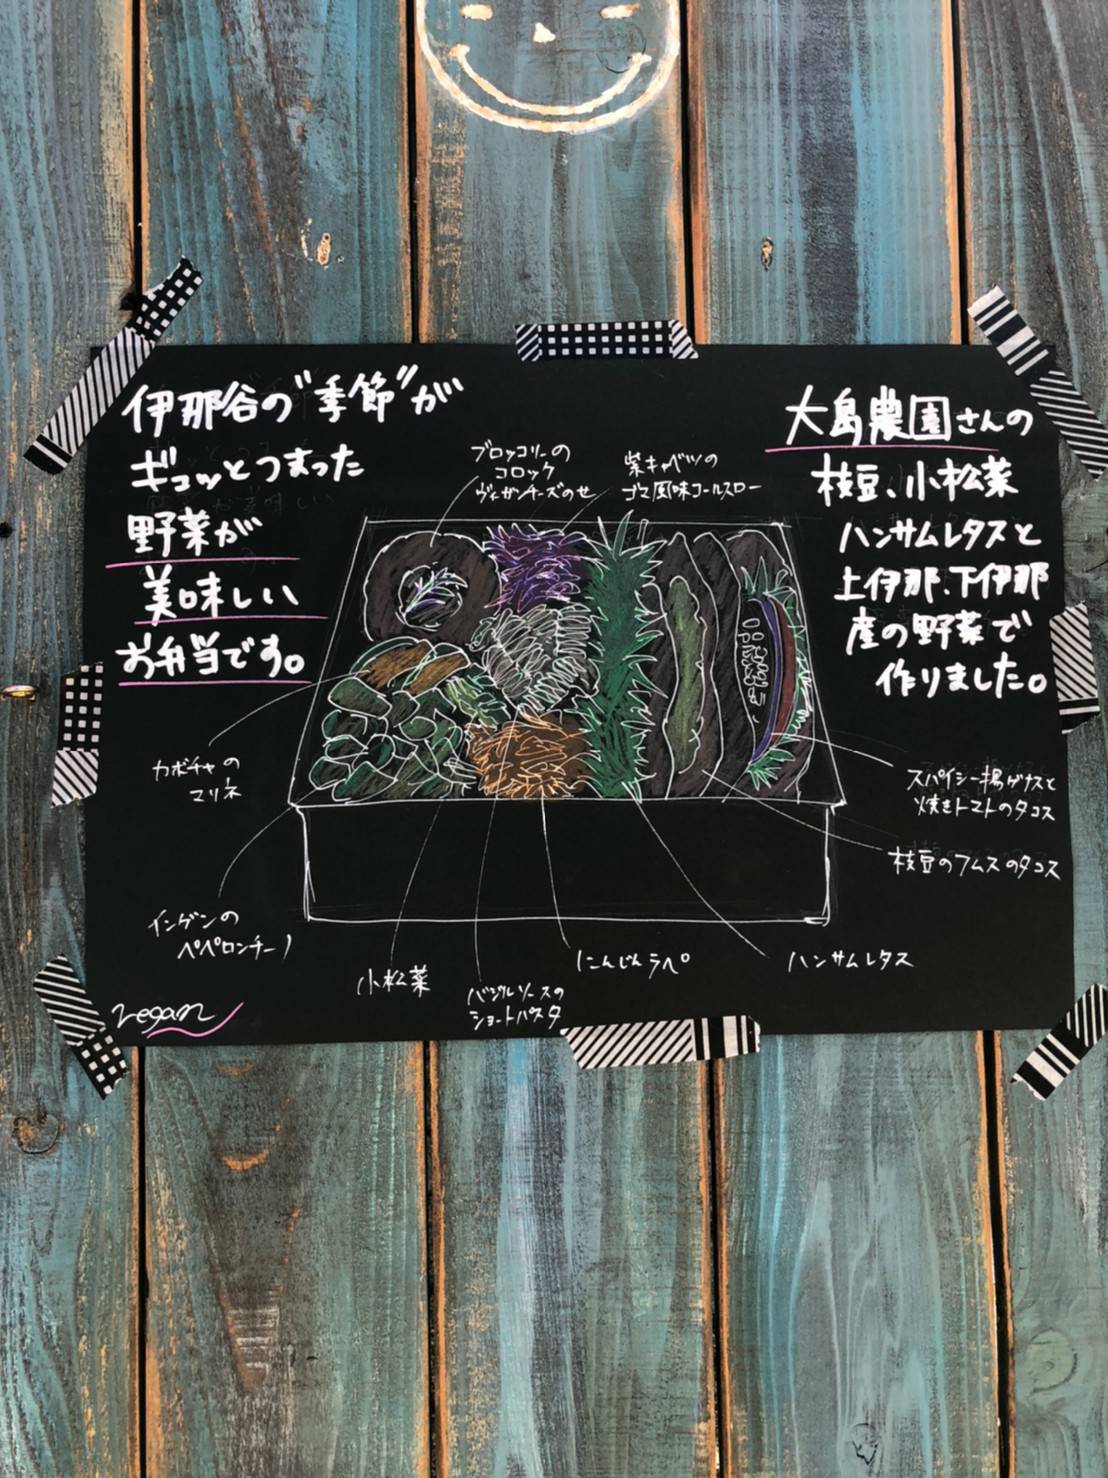 伊那谷の"季節"が
ギュッとつまった
野菜が
美味しい
お弁当です。
大島農園さんの
枝豆、小松菜
ハンサムレタスと
上伊那、下伊那
産の野菜で
作りました。
ブロッコリーの
コロッケ
ヴィーガンチーズのせ
紫キャベツの
ゴマ風味コールスロー
カボチャの
マリネ
スパイシー揚げナスと
焼きトマトのタコス
枝豆のフムスのタコス
インゲンの
ペペロンチーノ
小松菜
バジルソースの
ショートパスタ
にんじんラペ
ハンサムレタス
vegan